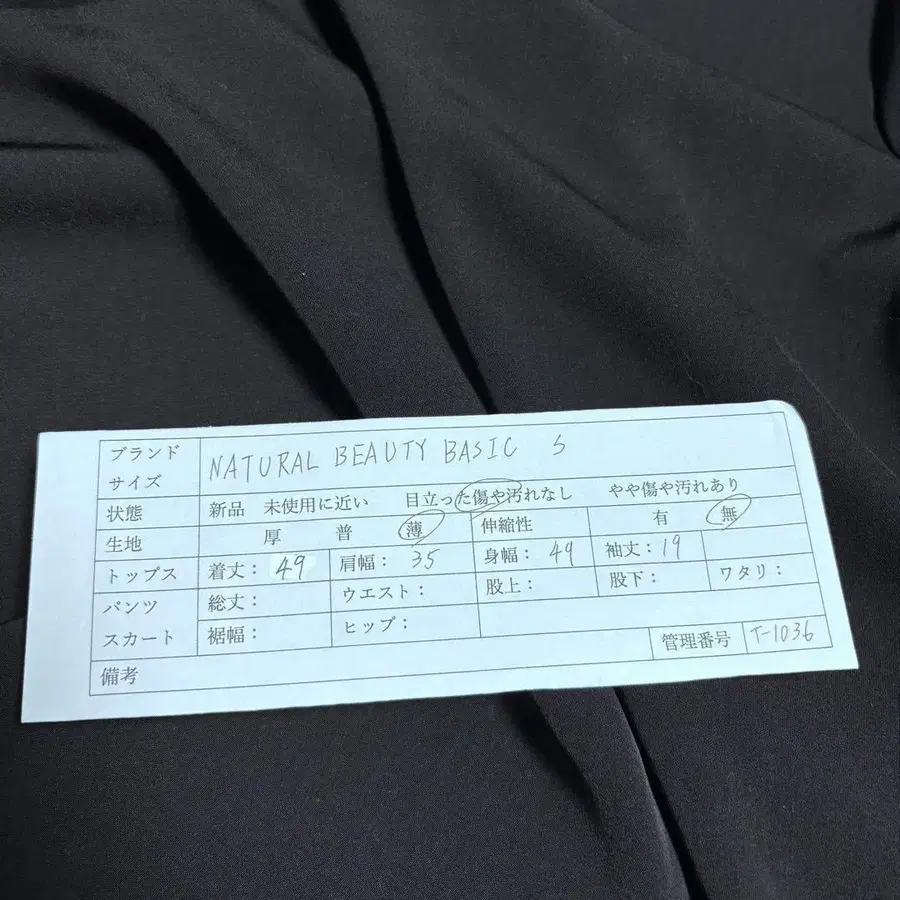 ブランド
サイズ
NATURAL BEAUTY BASIC S
状態 新品 未使用に近い 目立った傷や汚れなし やや傷や汚れあり
生地 厚 普 薄 伸縮性 有 無
トップス 着丈： 49 肩幅： 35 身幅： 49 袖丈：19
パンツ
スカート
総丈： ウエスト： 股上： 股下： ワタリ：
裾幅： ヒップ：
備考 管理番号 T-1036